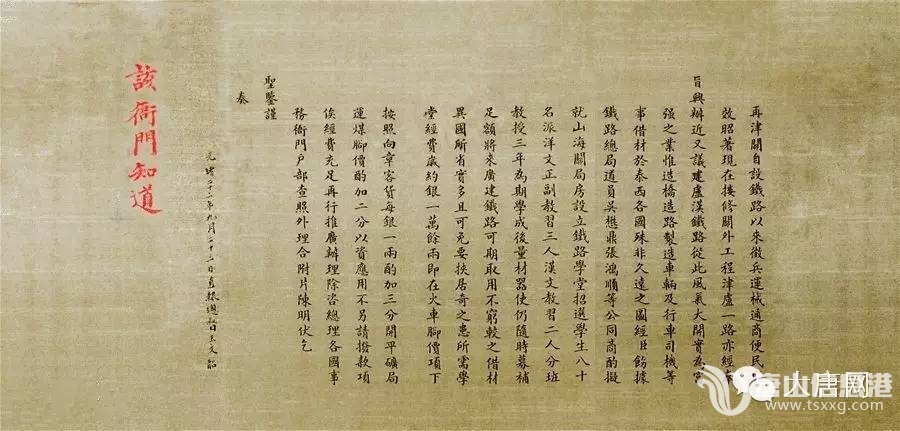 再津關自設鐵路以來徵兵運械通商便民
效昭著現在接修關外工程津盧一路亦經
旨興辦近又議建盧漢鐵路從此風氣大開實為富
强之業惟造橋造路製造車輛及行車司機等
事借材於泰西各國殊非久遠之圖經臣飭據
鐵路總局道員吳懋鼎張鴻順等公同商酌擬
就山海關局房設立鐵路學堂招選學生八十
名派洋文正副教習三人漢文教習二人分班
教授三年為期學成後量材器使仍隨時募補
足額將來廣建鐵路可期取用不窮較之借材
異國所省實多且可免要挾居奇之患所需學
堂經費歲約銀一萬餘兩即在火車腳價項下
按照向章客貨每銀一兩酌加三分開平礦局
運煤腳價酌加二分以資應用不另請撥款項
俟經費充足再行推廣辦理除咨總理各國事
務衙門户部查照外理合附片陳明伏乞
聖鑒謹
奏
光緒二十二年九月二十二日直隸總督臣王文韶
該衙門知道
大唐网
唐山信息港
www.tsxxg.com